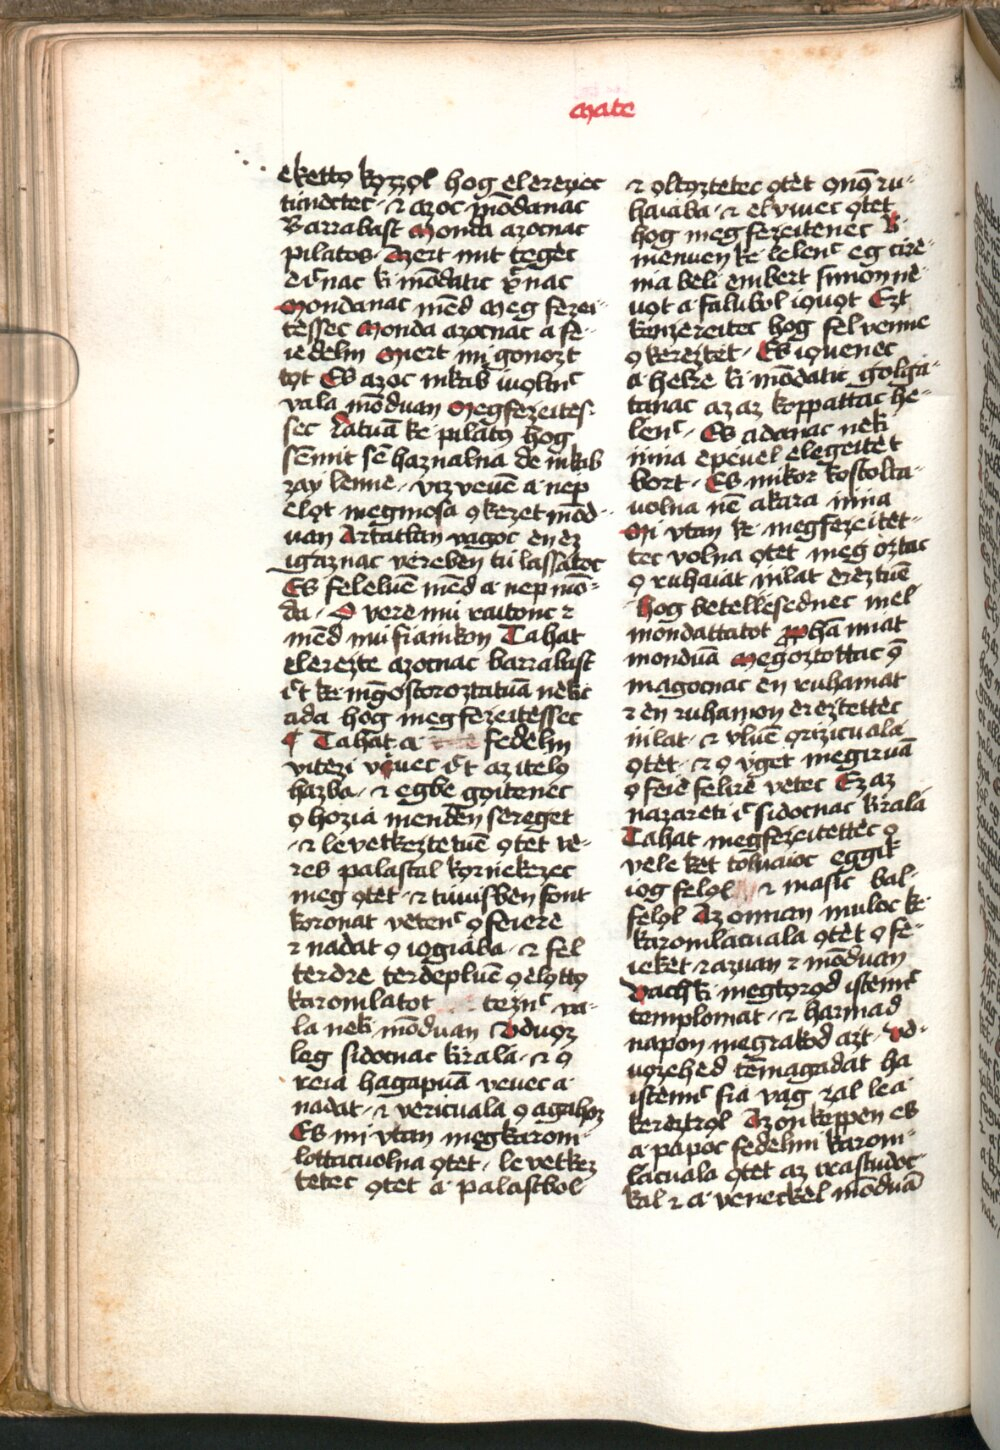 Mate
eketto kozzol hog elerezec
tunectec · ⁊ azoc mōdanac
Barrabast Monda azocnac
pilatos · Azert mit tegec
ic̄nac ki mōdatic xp̄nac
Mondanac mēd Meg fezei-
tessec Monda azocnac a fe-
iedelm Mert mi gonozt
tot Es azoc inkab iuoltnc̄
vala mōduan Megfezeites-
sec Latuā ke pilatꝯ hog
sēmit sē haznalna de inkab
zay lenne · viz veuē a nep
elọt megmosa ọ kezet mōd-
uan Artatlan vagoc en ez
igaznac vereben tū lassatoc
Es feleluē mēd a nep mō-
da · O vere mū raitonc ⁊
mēd mū fiainkon Tahat
elerezte azocnac barrabast
ic̄t ke mēgostoroztatuā nekic
ada hog megfezeitessec
¶ Tahat a fedelm
vitezi vọuec ic̄t az itelọ
hazba · ⁊ egbe gọitenec
ọ hozia menden sereget
· ⁊ leuetkeztetuē ọtèt ve-
res palastal kọrnekezec
meg ọtèt · ⁊ tiuisbẹn font
koronat vetenc̄ ọ feiere
⁊ nadat ọ iogiaba · ⁊ fel
terdre terdepluē ọ elọttọ
karomlatot teznc̄ va-
la neki mōduan Vduọz
leg sidocnac kirala · ⁊ ọ
reia hagapuā veuec a
nadat · ⁊ vericuala ọ agahoz
Es mi vtan megkarom-
lottacuolna ọtèt · le vetkez
tetec ọtèt a palastbol
⁊ ọltọztetec ọtèt ọnọ̄ ru-
haiaba · ⁊ el viuec ọtèt
hog megfezeitenec K
menuen ke lelenc̄ eg cire-
nia beli embert simon ne-
uọt a faluból iọuọt Ezt
kenzereitec hog fel venne
ọ kereztèt · Es iọuenec
a helre ki mōdatic golga-
tanac az az koppattac he-
lenc̄ · Es adanac neki
inia epeuel elegeitèt
bort · Es mikor kostolta-
uolna nē akara innia
Mi vtan ke megfezeitèt-
tec volna ọtèt meg oztac
ọ ruhaiat nilat ereztuē
hog betellesednec mel
mondattatot prophā miat
monduā Megoztottac ọ̄
magocnac en ruhamat
⁊ en ruhamon ereztettec
nilat · ⁊ vluē ọrizicuala
ọtèt · ⁊ ọ vget megiruā
ọ feie felire vetec Ez az
nazareti ic̄ sidocnac kirala
Tahat megfezeitettec ọ
vele ket tolvaioc eggik
iog felọl ⁊ masic bal-
felọl Az onnan muloc ke
karomlacuala ọtèt ọ fe-
ieket razuan ⁊ mōduan
Vach ki megtọrọd istenc̄
templomat · ⁊ harmad
napon megrakod azt · Vd-
uọzehed tēmagadat ha
istenc̄ fia vag zal lea
kereztrọl Azon keppen es
a papoc fedelmi karom-
lacuala ọtèt az irastudoc-
kal ⁊ a veneckel mōduā